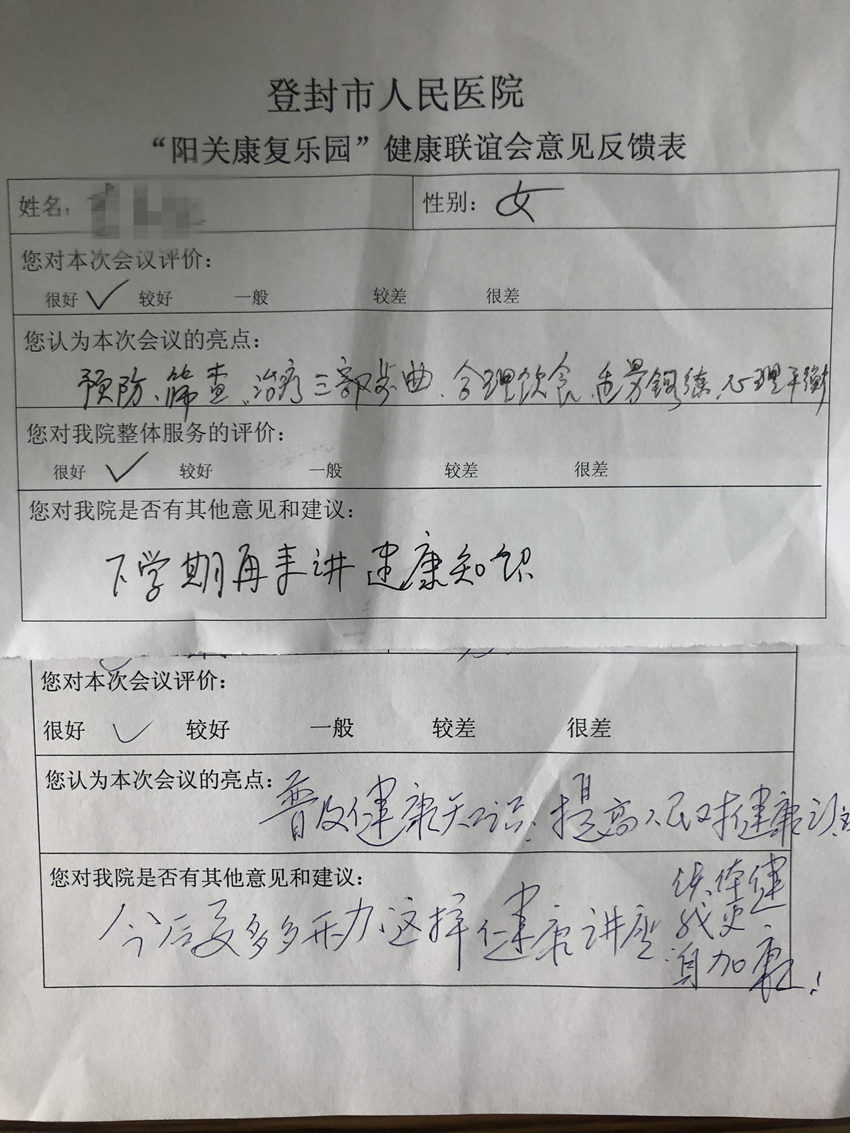 登封市人民医院
“阳关康复乐园”健康联谊会意见反馈表
姓名: 性别：女
您对本次会议评价：
很好 ✓ 较好 一般 较差 很差
您认为本次会议的亮点：
预防、筛查、治疗三部步曲、合理饮食、适量锻练、心理平衡
您对我院整体服务的评价：
很好 ✓ 较好 一般 较差 很差
您对我院是否有其他意见和建议：
下学期再来讲健康知识
您对本次会议评价：
很好 ✓ 较好 一般 较差 很差
您认为本次会议的亮点：
普及健康知识、提高人民对健康认
您对我院是否有其他意见和建议：
今后要多多开办这样健康讲座
使我身体更加健康！